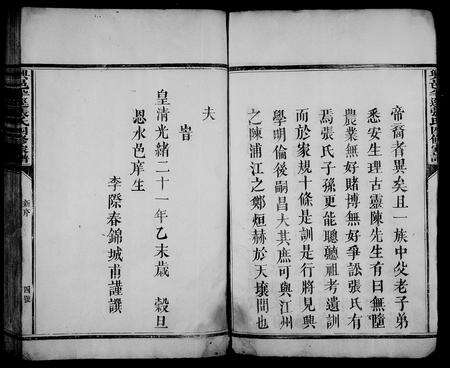 帝裔者異矣且一族中父老子弟
悉安生理古靈陳先生有曰無墮
農業無好賭博無好爭訟張氏有
焉張氏子孫更能聰聽祖考遺訓
而於家規十條是訓是行將見興
學明倫後嗣昌大其庶可與江州
之陳浦江之鄭烜赫於天壤間也
夫 旹
皇清光緒二十一年乙未歲 穀旦
恩水邑庠生
李際春錦城甫謹譔
新序
四號